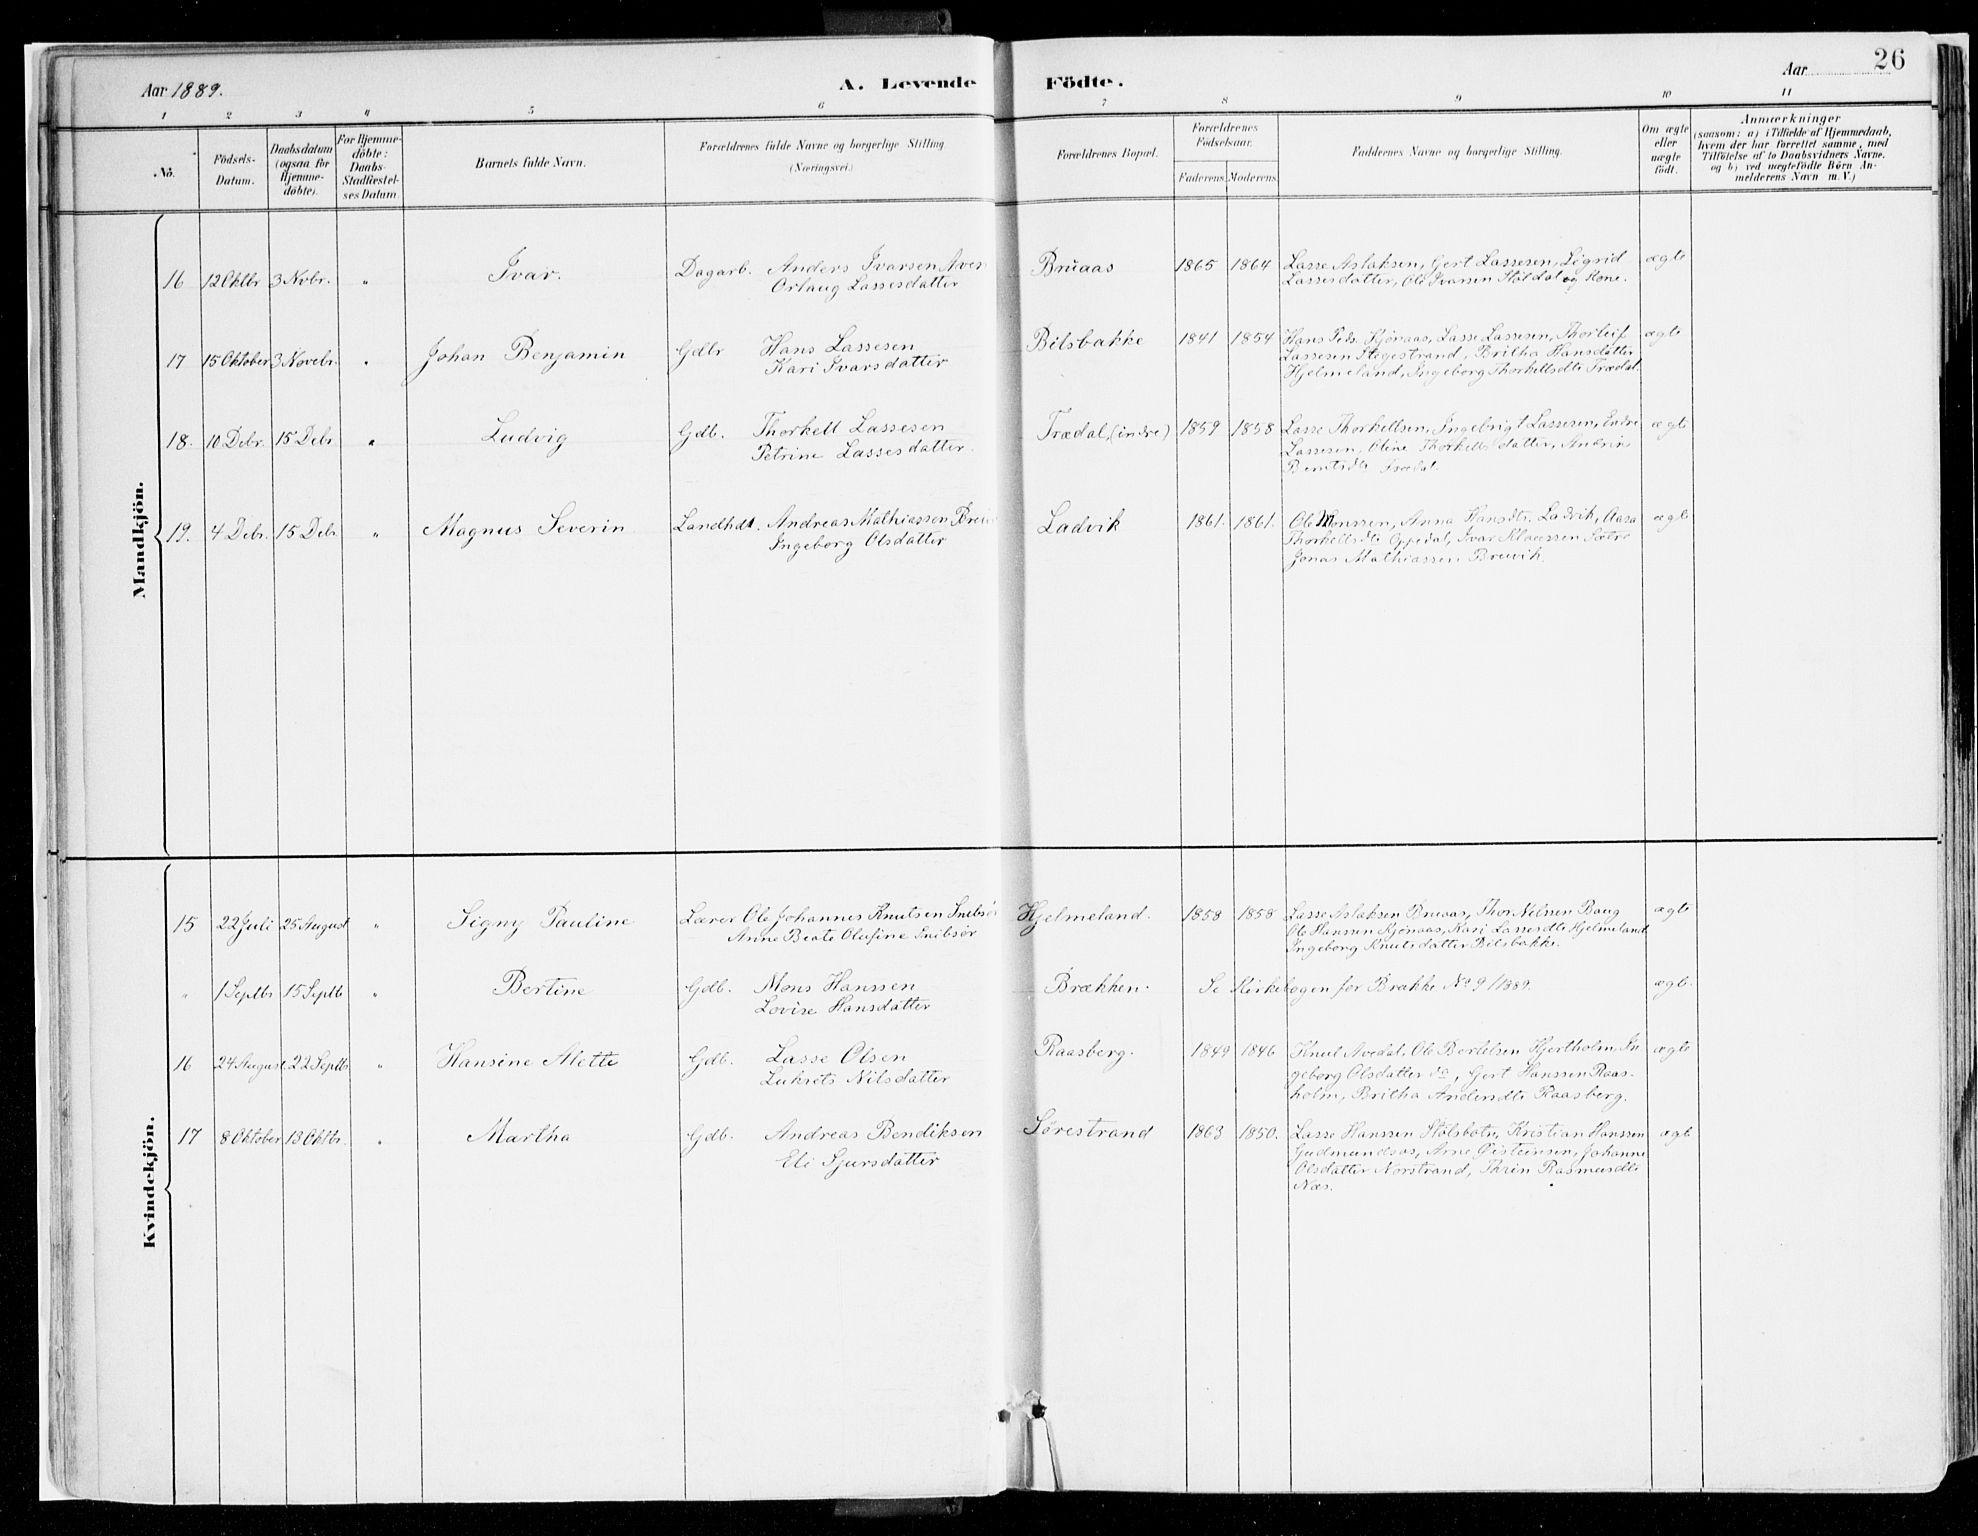 Aar 1889. A. Levende Födte. Aar 26
1 2 3 4 5 6 7 8 9 10 11
No. Födsels-Datum. Daabsdatum (ogsaa for Hjemmedöbte). For Hjemmedöbte: Daabs-Stadfæstelses Datum. Barnets fulde Navn. Forældrenes fulde Navne og borgerlige Stilling (Næringsvei.) Forældrenes Bopæl. Forældrenes Födselsaar. Faderens Moderens Faddernes Navne og borgerlige Stilling. Om ægte eller uægte födt. Anmærkninger (saasom: a) i Tilfælde af Hjemmedaab, hvem der har forrettet samme, med Tilföielse af to Daabsvidners Navne, og b) ved uægtefödte Börn Anmelderens Navn m. V.)
Mandkjön.
16 12 Oktbr 3 Novbr. " Ivar. Dagarb. Anders Ivarsen Bruaas 1865 1864 Lasse Aslaksen, Gert Lassesen, Sigrid ægte
Orlaug Lassesdatter Lassesdatter, Ole Ivarsen Stöldal og Kone.
17 15 Oktober 3 Novebr. " Johan Benjamin Gdbr Hans Lassesen Bilsbakke 1841 1854 Hans Peds. Kjönaas, Lasse Lassesen, Thorleif ægte
Kari Ivarsdatter Lassesen Stegestrand, Britha Hansdatter
Hjelmeland, Ingeborg Thorkellsdtr Trædal.
18. 10 Debr. 15 Debr " Ludvig Gdb. Thorkell Lassesen Trædal, (indre) 1859 1858 Lasse Thorkellsen, Ingebrigt Lassesen, Endre ægte
Petrine Lassesdatter. Lassesen, Oline Thorkellsdatter,
Trædal.
19. 4 Debr. 15 Debr " Magnus Severin Landhdl. Andreas Mathiassen Ladvik 1861. 1861. Ole Monssen, Anna Hansdtr Ladvik, Aasa ægte
Ingeborg Olsdatter Thorkellsdtr Oppedal, Ivar Klaussen Sötre
Jonas Mathiassen Breivik.
Kvindekjön.
15 22 Juli 25 August " Signy Pauline Lærer Ole Johannes Knutsen Indbsör Hjelmeland. 1858 1858 Lasse Aslaksen Bruaas, Thor Nilssen Baug ægte
Anne Beate Olufine Indbsör Ole Hanssen Kjönaas, Kari Lassesdtr Hjelmeland
Ingeborg Knutsdatter Bilsbakke.
" 1 Septbr 15 Septb " Bertine Gdb. Mons Hanssen Brækken. Se Kirkebogen for Brække No 9/1889. ægte.
Lovise Hansdatter
16 24 August 22 Septb " Hansine Alette Gdb. Lasse Olsen Raasberg. 1849 1846 Knut Avedal, Ole Bertelsen Hjertholm, In ægte
Lukrets Nilsdatter geborg Olsdatter do, Gert Hanssen Raas-
holm, Britha Andersdtr Raasberg.
17 8 Oktober 13 Oktbr. " Martha Gdb. Andreas Bendiksen Sørestrand 1863 1850. Lasse Hanssen Stölsbotn, Kristian Hanssen ægte
Eli Sjursdatter Gudmundsos, Arne Oisteinsen, Johanne
Olsdatter Norstrand, Thrin Rasmusdtr
Næs.